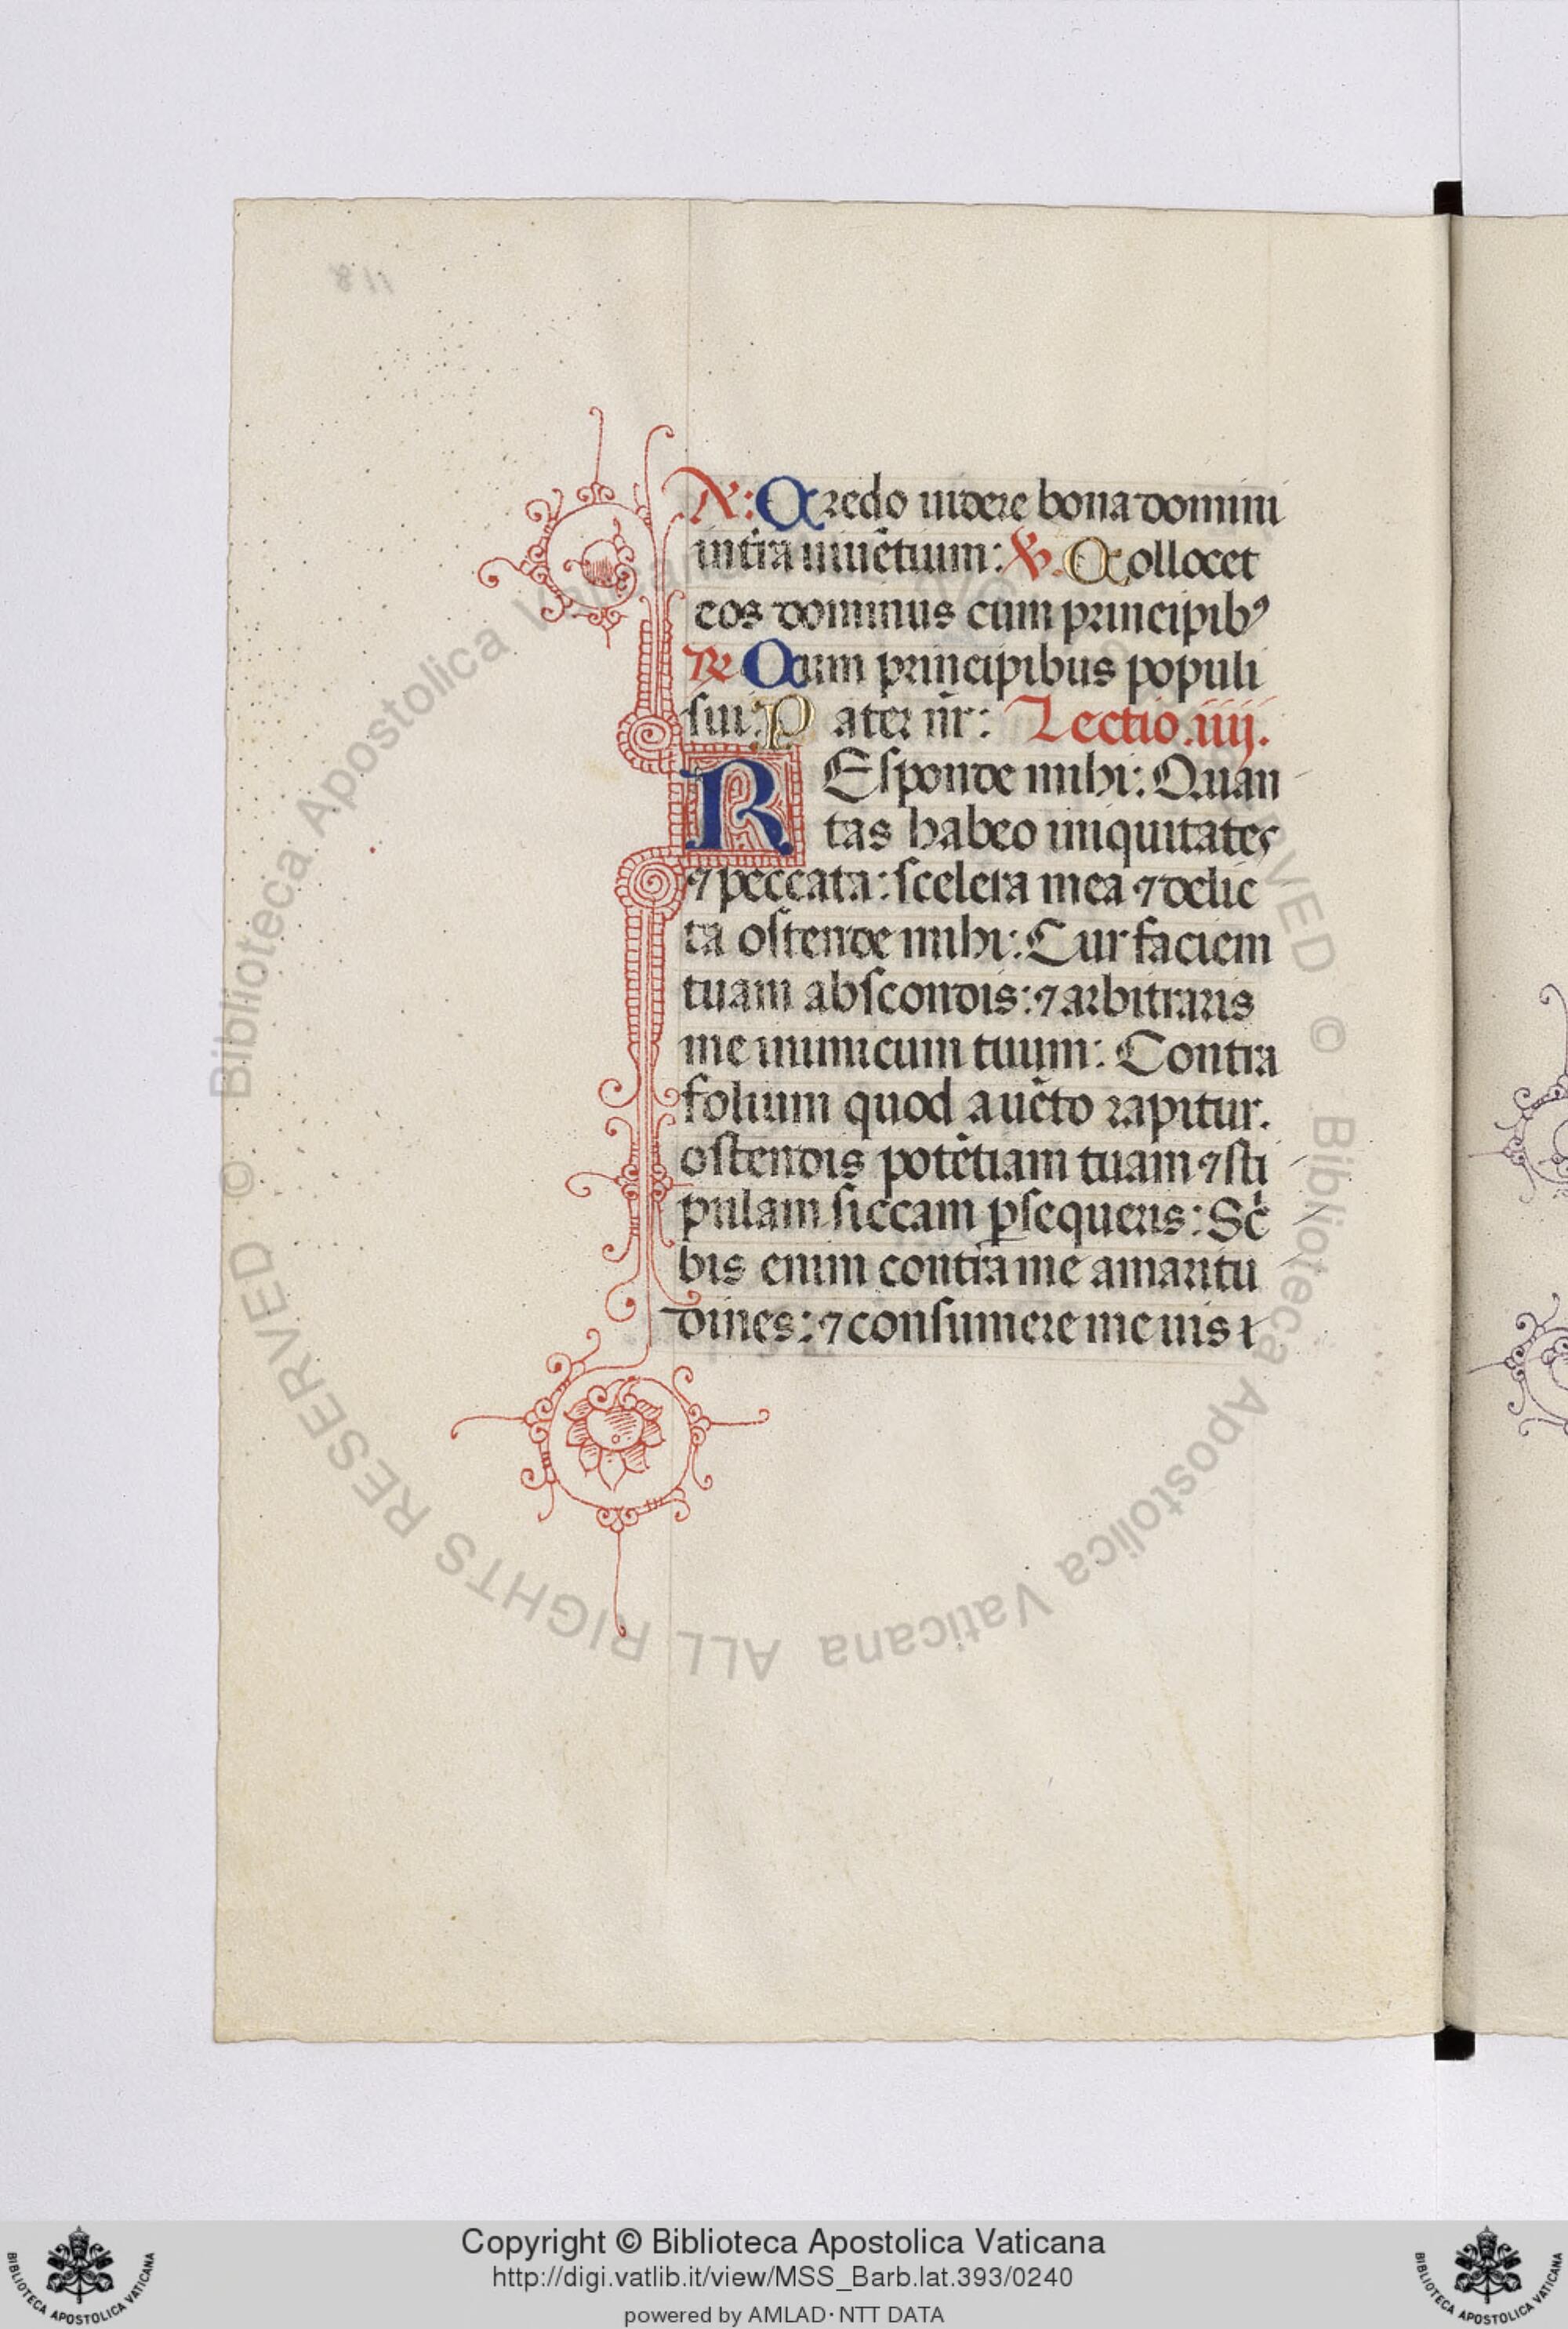 A: Credo uidere bona domini
in tr̄a uiuẽtium: ℣. Collocet
eos dominus cum principibꝰ
℟ Cum principibus populi
sui: Pater nr̄: Lectio .iiij.
REsponde mihi: Quan-
tas habeo iniquitates
⁊ peccata: scelera mea ⁊ delic
ta ostende mihi: Cur faciem
tuam abscondis: ⁊ arbitraris
me inimicum tuum: Contra
folium quod a uẽto rapitur.
ostendis potẽtiam tuam ⁊ sti-
pulam siccam ꝑsequeris: Sc̃-
bis enim contra me amaritu
dines: ⁊ consumere me uis
118
© Biblioteca Apostolica Vaticana ALL RIGHTS RESERVED
© Biblioteca Apostolica Vaticana
BIBLIOTECA APOSTOLICA VATICANA
Copyright © Biblioteca Apostolica Vaticana
http://digi.vatlib.it/view/MSS_Barb.lat.393/0240
powered by AMLAD·NTT DATA
BIBLIOTECA APOSTOLICA VATICANA